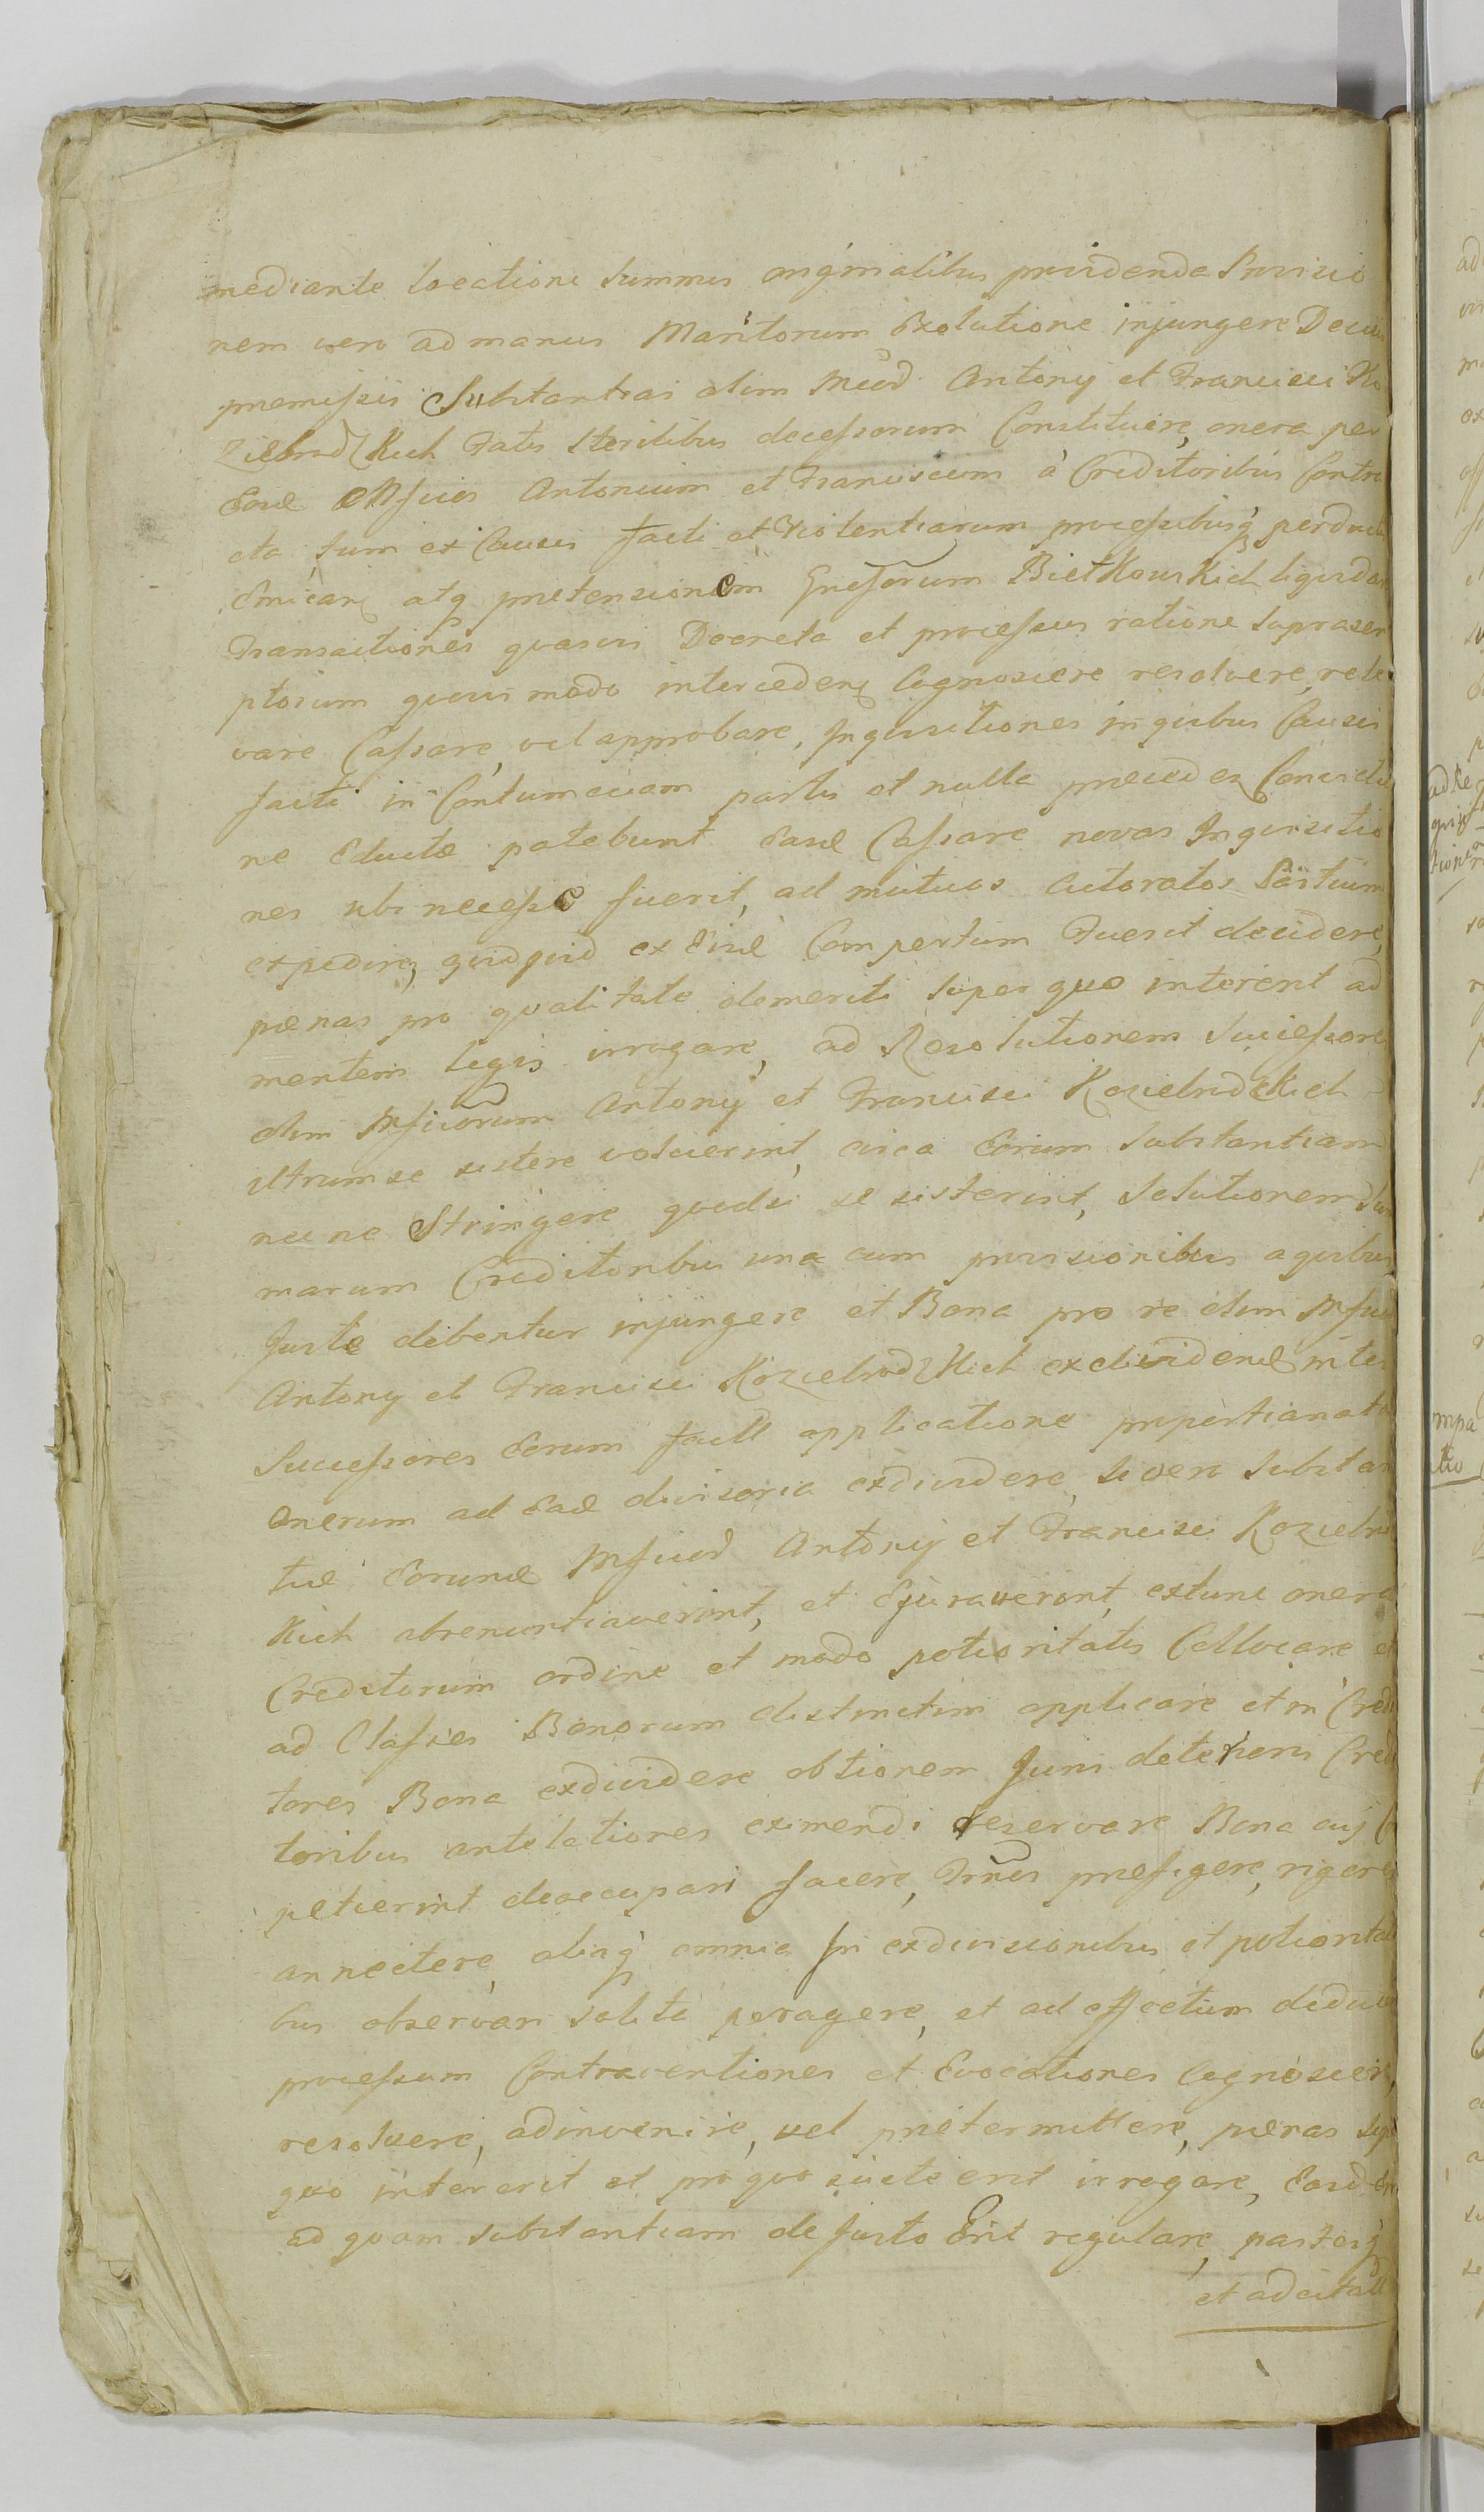 mediante locatione summis originalibus providenda Provisio
nem vero ad manus Maritorum Exolutione injungere
premissis Substantias olim Mcord Antonij et Francisci Ko
ziebrodzkich Fatis sterilibus decessorum Constituere, onera per
Eosd Antonium et Franciscum à Creditoribus Contra
cta tum ex Causis facti et Violentiarum processibusq perducta
atq pretensionem Gnesorum Bietkowskich liquidare
Transactiones quasvis Decreta et processus ratione suprascri
ptorum quovis modo interceden Cognoscere resolvere, rele
vare Cassare, vel approbare, Inquisitiones in quibus Causis
facti in Contumaciam partis et nulla preceden Convictio
ne Eductæ patebunt Easd Cassare novas Inquisitio
nes ubi necesse fuerit, ad mutuos Actoratos Partium
expedire, quidquid ex Eisd Compertum Fuerit decidere,
pænas pro qualitate demeriti super quo intererit ad
mentem legis irrogare, ad Resolutionem Successores
olim Mfficorum Antonij et Francisci Koziebrodzkich
utrum se sistere voluerint, circa Eorum substantiam
nec ne Stringere quodsi se sisterint, Solutionem Sum
marum Creditoribus una cum provisionibus a quibus
Juste debentur injungere et Bona pro re olim Mffico
Antony et Francisci Koziebrodzkich exdividend inter
Successores Eorum facta applicatione propertianata
onerum ad Ead divisoria exdividere, si vero substan
tiæ Eorund Mfficord Antonij et Francisci Koziebrodz
kich abrenuntiaverint, et Ejuraverint, extunc onera
Creditorum ordine et modo potioritatis Collocare et
ad Classes Bonorum distinctim applicare et in Credi
tores Bona exdividere obtionem Juris deterioris Credi
toribus antelatiores eximendi reservare Bona
petierint deoccupari facere, Trnos præfigere, rigores
annectere, aliaq omnia In exdivisionibus et potiorita
bus observari solita peragere, et ad effectum deducere
processum Contraventiones et Evocationes cognoscere,
resolvere, adinvenire, vel prætermittere, pænas super
quo intererit et pro quo juste erit irrogare, Easdem
ad quam substantiam de Justo Erit regulare, partesq
et adcitatt